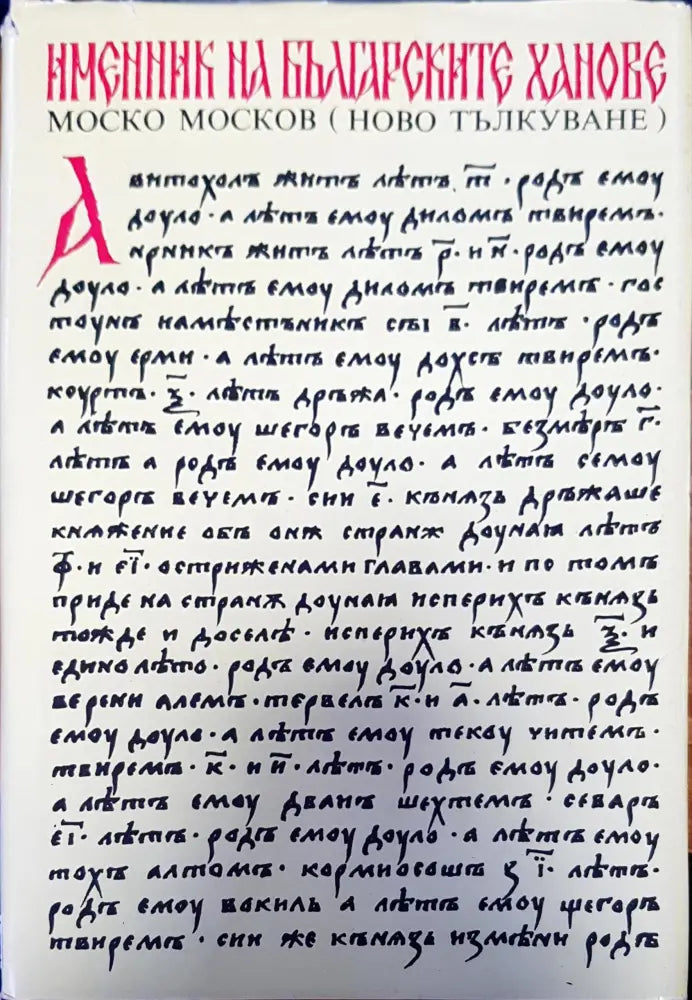 ИМЕННИК НА БЪЛГАРСКИТЕ ХАНОВЕ
МОСКО МОСКОВ ( НОВО ТЪЛКУВАНЕ )
Авитохолъ житъ лѣтъ. т҃ · родъ емоу
доуло · а лѣтъ емоу диломъ твиремъ ·
ирникъ житъ лѣтъ р҃ · и н҃ · родъ емоу
доуло · а лѣтъ емоу диломъ твиремъ · гос
тоунъ намѣстъникъ сꙑ в҃ · лѣтъ · родъ
емоу ерми · а лѣтъ емоу дохсъ твиремъ ·
коуртъ · ѯ҃ · лѣтъ дръжа · родъ емоу доуло ·
а лѣтъ емоу шегоръ вечемъ · безмѣръ г҃ ·
лѣтъ а родъ емоу доуло · а лѣтъ семоу
шегоръ вечемъ · сии е҃ · кънѧзь дръжаше
княжение обѣ онѫ странѫ доунаꙗ лѣтъ
ф҃ · и еі҃ · остриженами главами · и по томъ
приде на странѫ доунаꙗ исперихъ кънѧзь
тожде и доселѣ · исперихъ кънѧзь ѯ҃ · и
едино лѣто · родъ емоу доуло · а лѣтъ емоу
верени алемъ · тервель к҃ · и а҃ · лѣтъ · родъ
емоу доуло · а лѣтъ емоу текоу читемъ ·
твиремъ · к҃ · и и҃ · лѣтъ · родъ емоу доуло ·
а лѣтъ емоу дванъ шехтемъ · севаръ
еі҃ · лѣтъ · родъ емоу доуло · а лѣтъ емоу
тохъ алтомъ · кормисошъ з і҃ · лѣтъ ·
родъ емоу вокиль а лѣтъ емоу шегоръ
твиремъ · сии же кънѧзь измѣни родъ